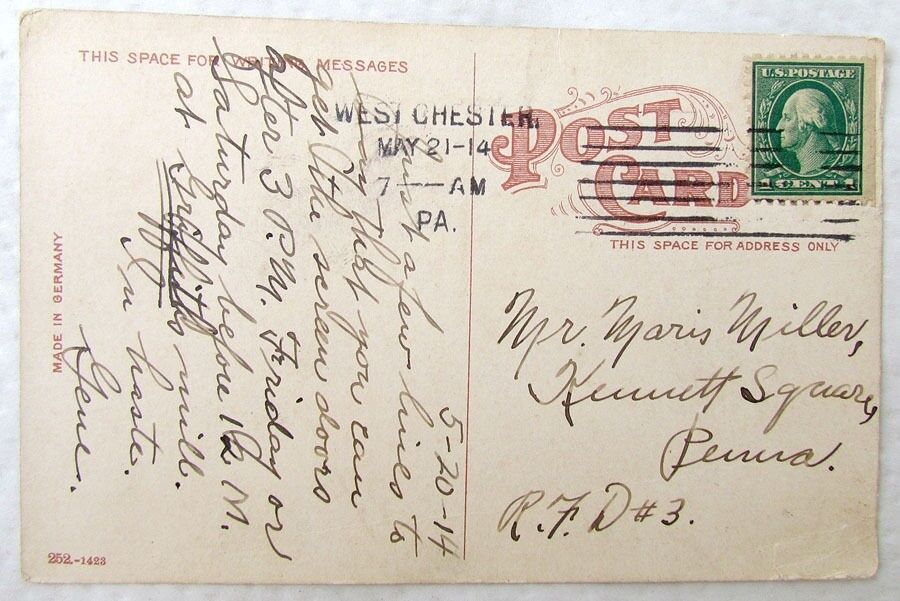 THIS SPACE FOR WRITING MESSAGES
5-20-14
Just a few lines to
say that you can
get the screen doors
after 3 P.M. Friday or
Saturday before 12 M.
at Griffith's mill.
In haste.
Gene.
MADE IN GERMANY
252.-1423
WEST CHESTER,
MAY 21-14
7 — AM
PA.
POST
CARD
THIS SPACE FOR ADDRESS ONLY
U.S. POSTAGE
1 CENT 1
Mr. Maris Miller,
Kennett Square,
Penna.
R.F.D #3.